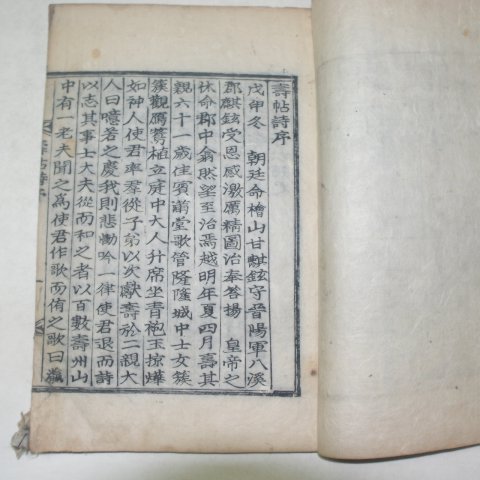 壽帖詩序
戊申冬 朝廷命檜山甘麒鉉守晋陽軍八溪
郡麒鉉受恩感激厲精圖治奉答揚 皇帝之
休命郡中翕然望至治焉越明年夏四月壽其
親六十一歲住賓莆堂歌管隆隆城中士女簇
簇觀焉鷺植立庭中大人升席坐青袍玉掠燁
如神人使君率羣從子弟以次獻壽於二親大
人曰噫若之慶我則悲慟吟一律使君退而詩
以志其事士大夫從而和之者以百數壽州山
中有一老夫聞之爲使君作歌而侑之歌曰瀛
壽帖詩序